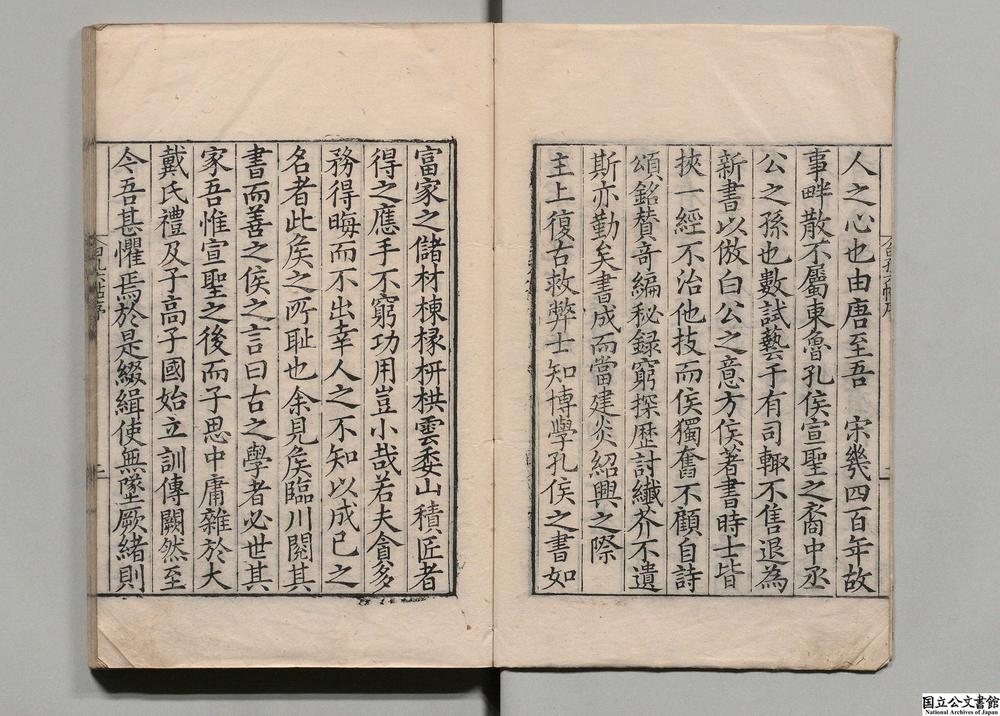 人之心也由唐至吾　宋幾四百年故
事畔散不屬東魯孔侯宣聖之裔中丞
公之孫也數試藝于有司輙不售退為
新書以倣白公之意方侯著書時士皆
挾一經不治他技而侯獨奮不顧自詩
頌銘賛竒編秘録窮探歴討纖芥不遺
斯亦勤矣書成而當建炎紹興之際
主上復古救弊士知博學孔侯之書如
富家之儲材棟椽枅栱雲委山積匠者
得之應手不窮功用豈小哉若夫貪多
務得晦而不出幸人之不知以成已之
名者此侯之所耻也余見侯臨川閱其
書而善之侯之言曰古之學者必世其
家吾惟宣聖之後而子思中庸雜於大
戴氏禮及子高子國始立訓傳闕然至
今吾甚懼焉於是綴緝使無墜厥緒則
国立公文書館
National Archives of Japan